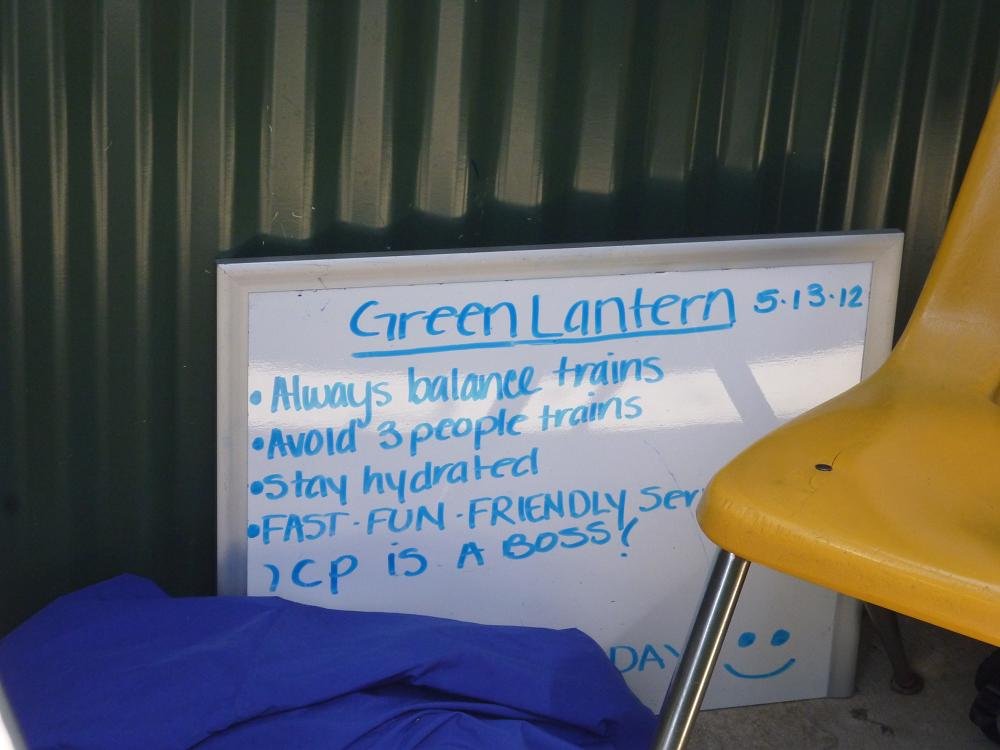 Green Lantern 5.13.12
• Always balance trains
• Avoid 3 people trains
• Stay hydrated
• FAST - FUN - FRIENDLY
CP iS A BOSS!
DAY